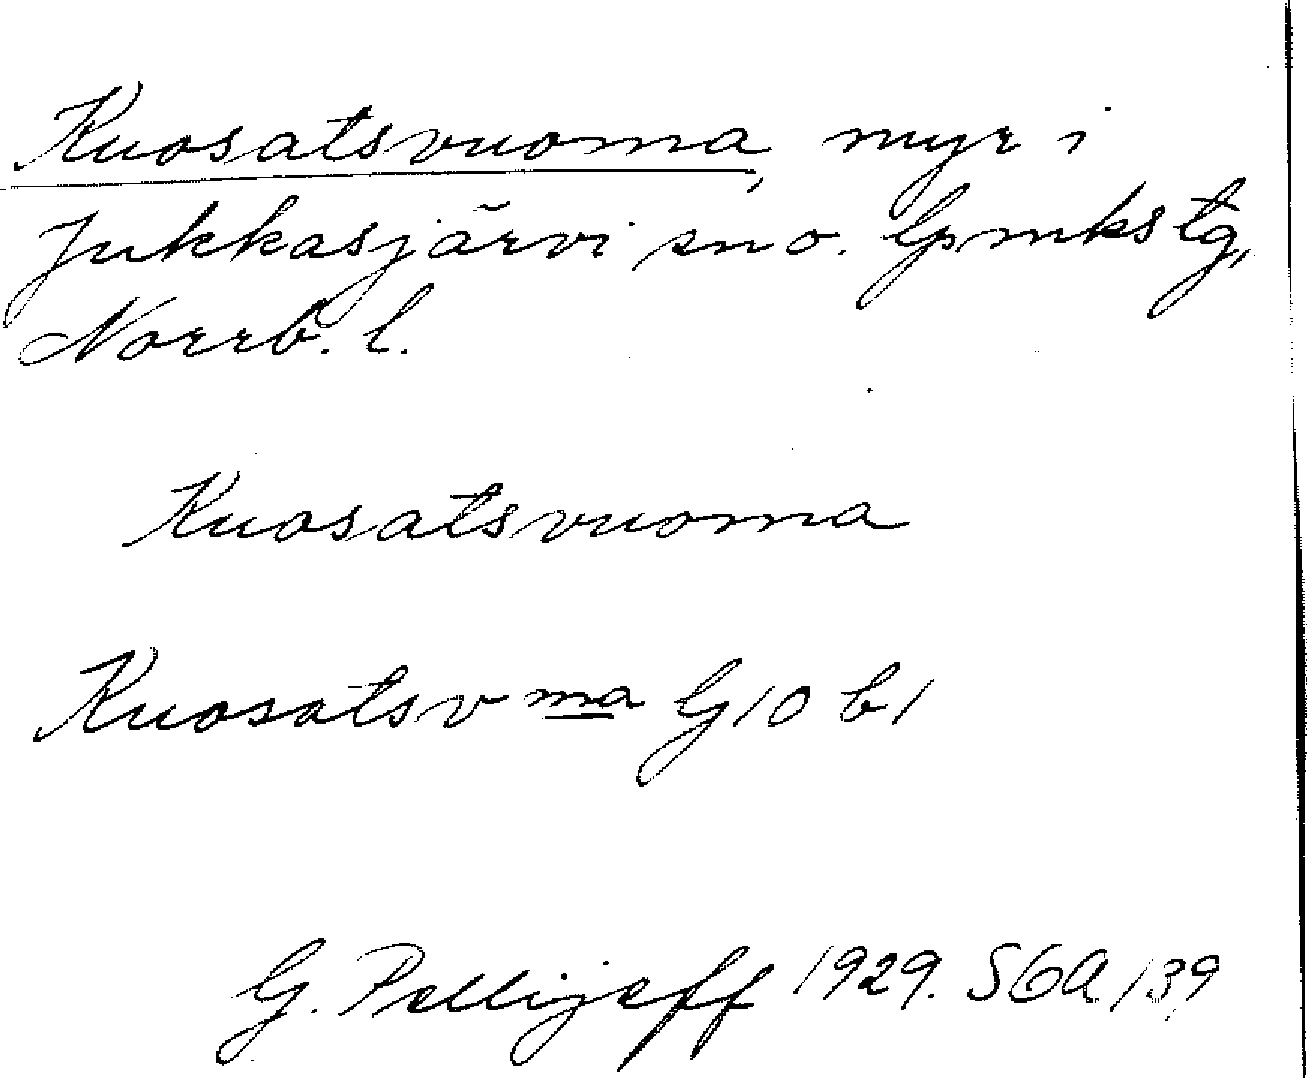 Kuosatsvuoma, myr i
Jukkasjärvi sn o. lpmkstg,
Norrb. l.
Kuosatsvuoma
Kuosatsv ma G10 b1
G. Pellijeff 1929. SGA 139